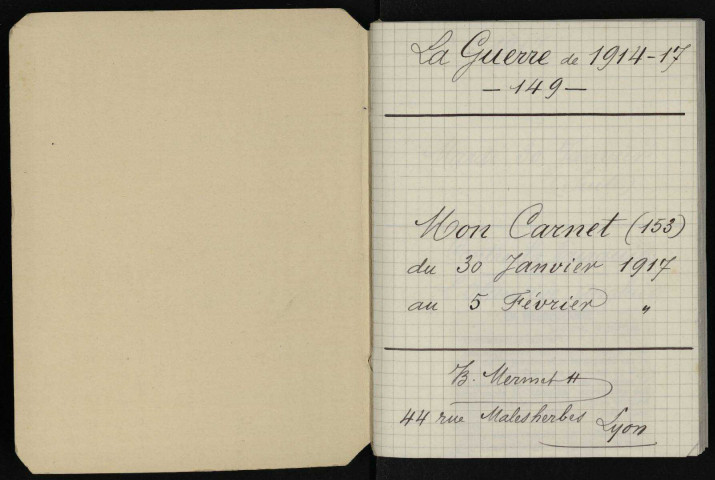 La Guerre de 1914-17
- 149 -
Mon Carnet (153)
du 30 Janvier 1917
au 5 Février "
B. Mermet
44 rue Malesherbes Lyon